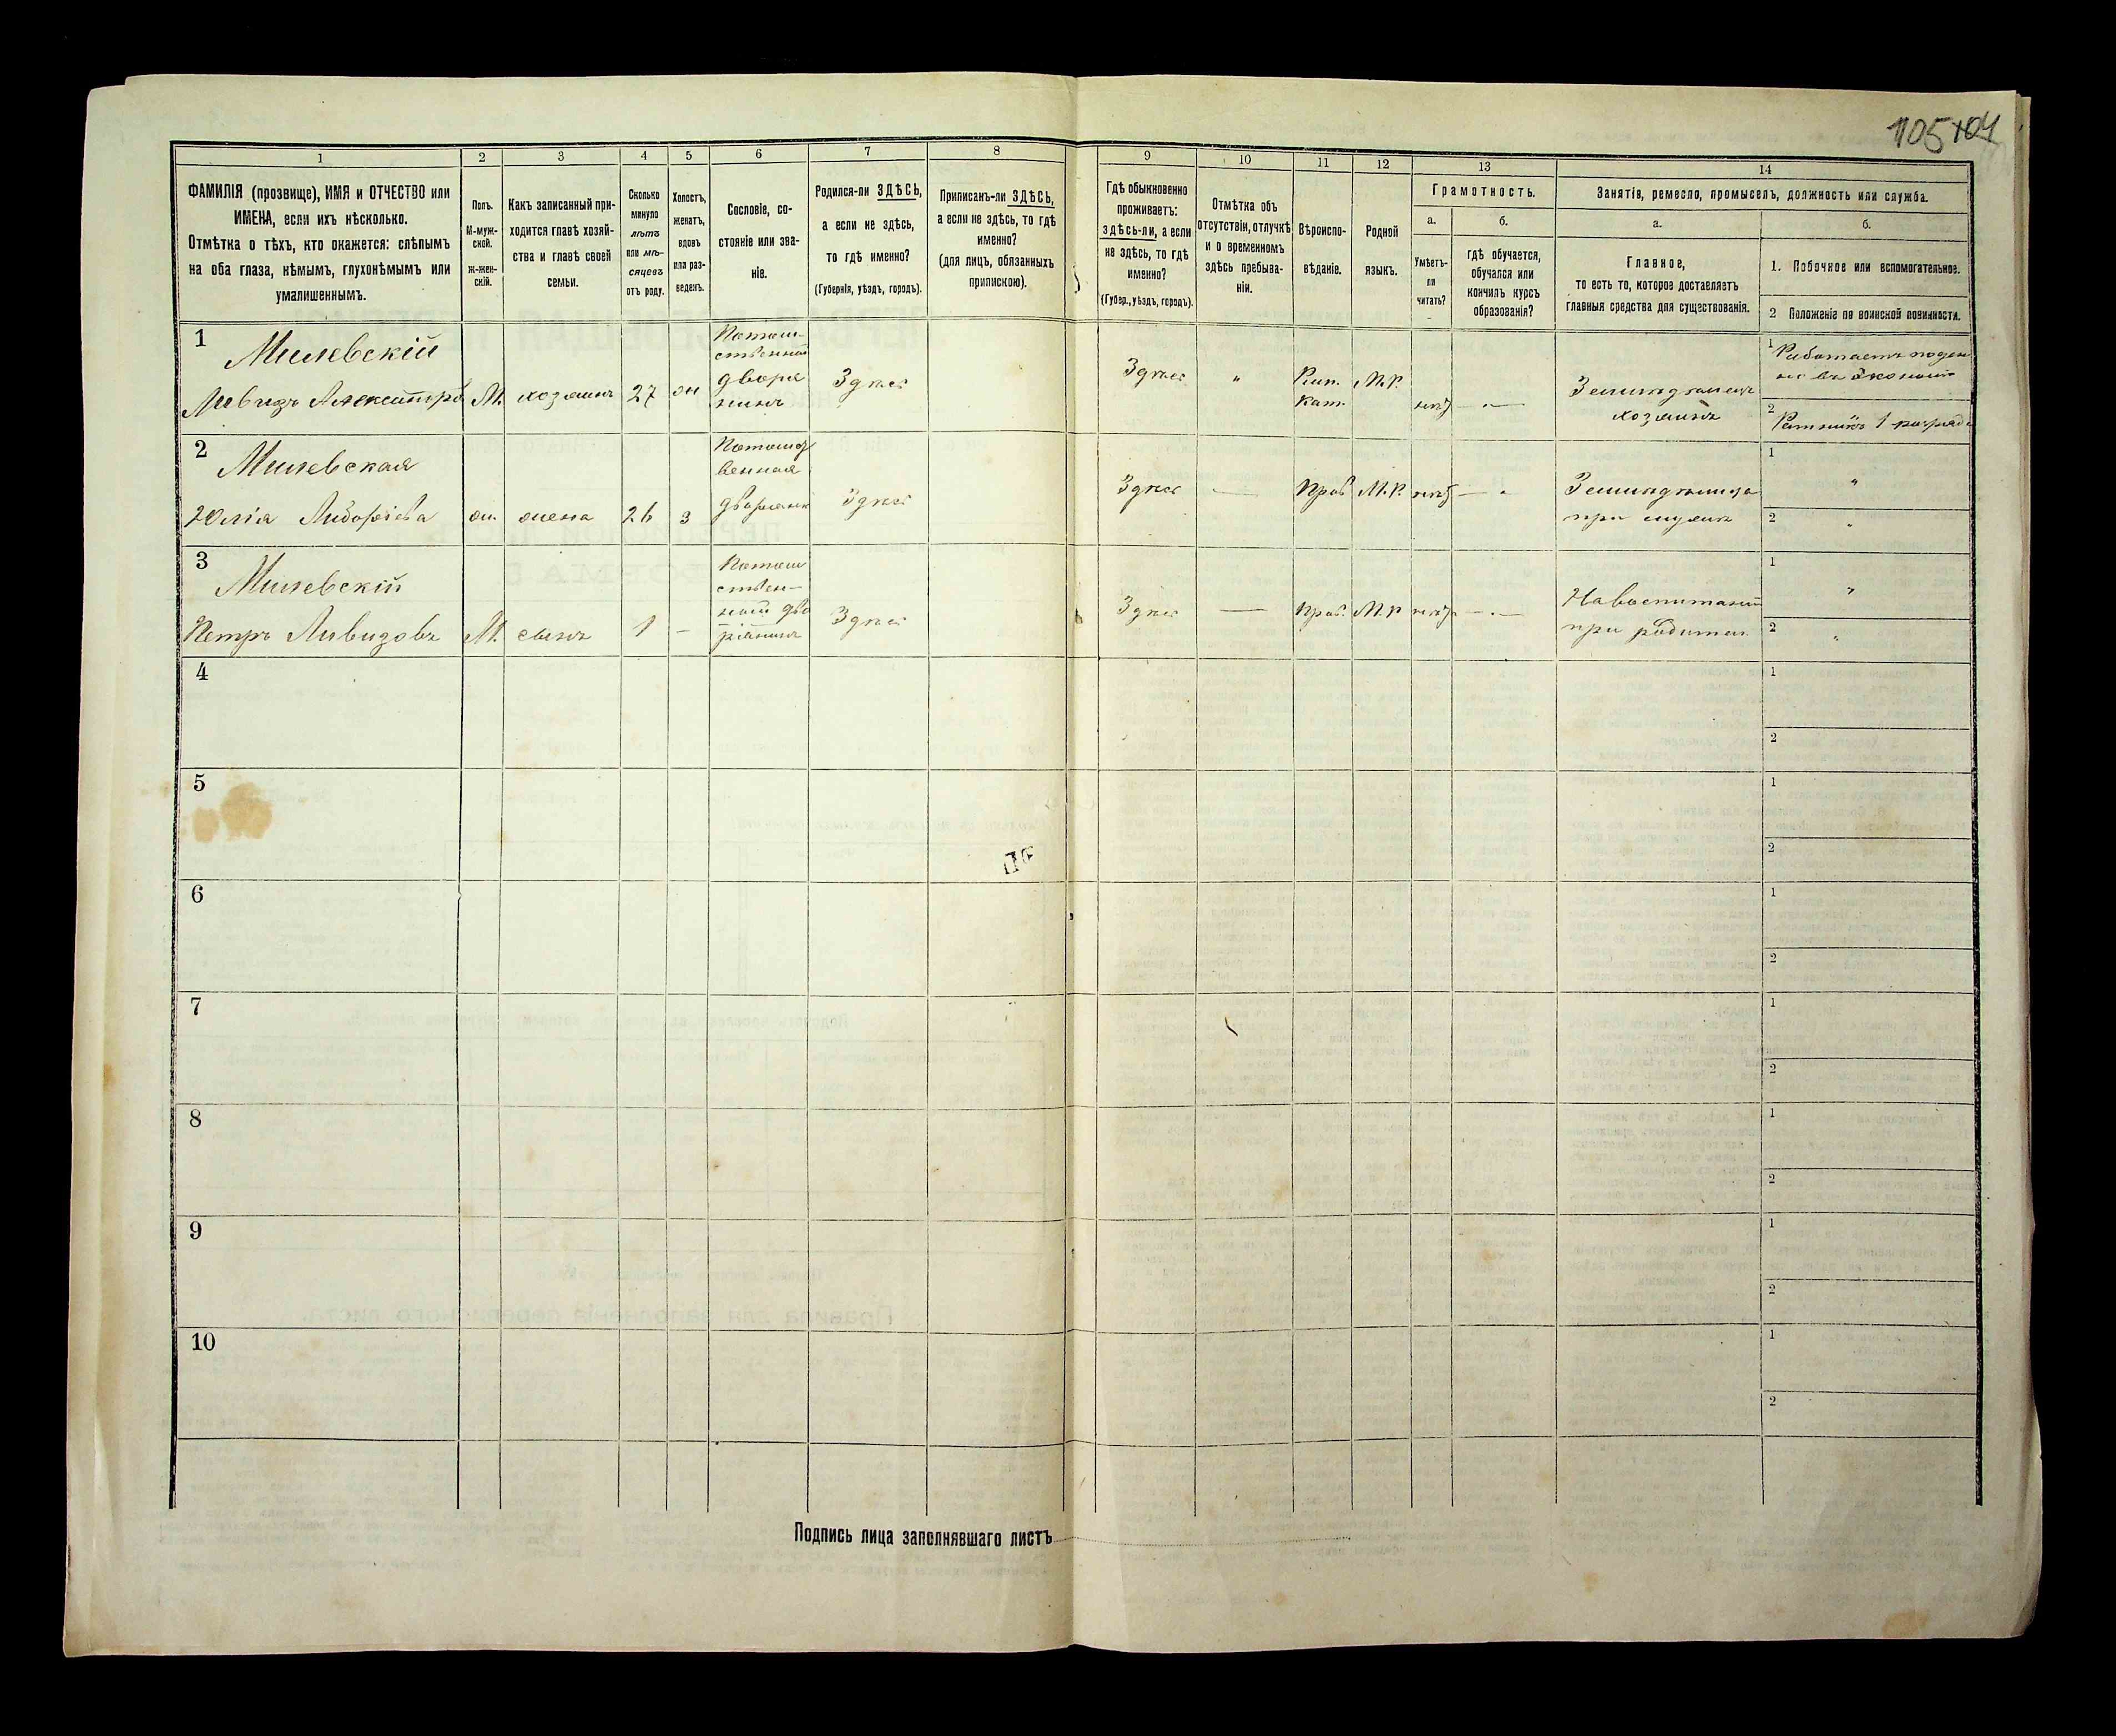 105 104
1 2 3 4 5 6 7 8 9 10 11 12 13 14
ФАМИЛІЯ (прозвище), ИМЯ и ОТЧЕСТВО или
ИМЕНА, если ихъ нѣсколько.
Отмѣтка о тѣхъ, кто окажется: слѣпымъ
на оба глаза, нѣмымъ, глухонѣмымъ или
умалишеннымъ.
Полъ.
М-муж-
ской.
ж-жен-
скій.
Какъ записанный при-
ходится главѣ хозяй-
ства и главѣ своей
семьи.
Сколько
минуло
лѣтъ
или мѣ-
сяцевъ
отъ роду.
Холостъ,
женатъ,
вдовъ
или раз-
веденъ.
Сословіе, со-
стояніе или зва-
ніе.
Родился-ли ЗДѢСЬ,
а если не здѣсь,
то гдѣ именно?
(Губернія, уѣздъ, городъ).
Приписанъ-ли ЗДѢСЬ,
а если не здѣсь, то гдѣ
именно?
(для лицъ, обязанныхъ
припискою).
Гдѣ обыкновенно
проживаетъ:
ЗДѢСЬ-ЛИ, а если
не здѣсь, то гдѣ
именно?
(Губер., уѣздъ, городъ).
Отмѣтка объ
отсутствіи, отлучкѣ
и о временномъ
здѣсь пребыва-
ніи.
Вѣроиспо-
вѣданіе.
Родной
языкъ.
Грамотность.
а.
Умѣетъ-
ли
читать?
б.
гдѣ обучается,
обучался или
кончилъ курсъ
образованія?
Занятія, ремесло, промыселъ, должность или служба.
а.
Главное,
то есть то, которое доставляетъ
главныя средства для существованія.
б.
1. Побочное или вспомогательное.
2 Положеніе по воинской повинности.
1
Милевскій
Александръ
М. хозяинъ 27 ж
Потом-
ственный
дворя
нинъ
Здѣсь
Здѣсь
"
Рим.
Кат.
М.Р.
нѣтъ —
хозяинъ
1 Работаетъ
2 Ратникъ 1 разряда
2
Милевская
Юлія
ж. жена 26 з
Потомст
венная
дворянка
Здѣсь
Здѣсь — Прав. М.Р. нѣтъ —
при мужѣ
1 "
2 "
3
Милевскій
Петръ
М. сынъ 1 —
Потом
ствен-
ный дво
рянинъ
Здѣсь
Здѣсь — Прав. М.Р нѣтъ —
На воспитаніи
при родител.
1 "
2 "
4 1
2
5 1
2
6 1
2
7 1
2
8 1
2
9 1
2
10 1
2
Подпись лица заполнявшаго листъ